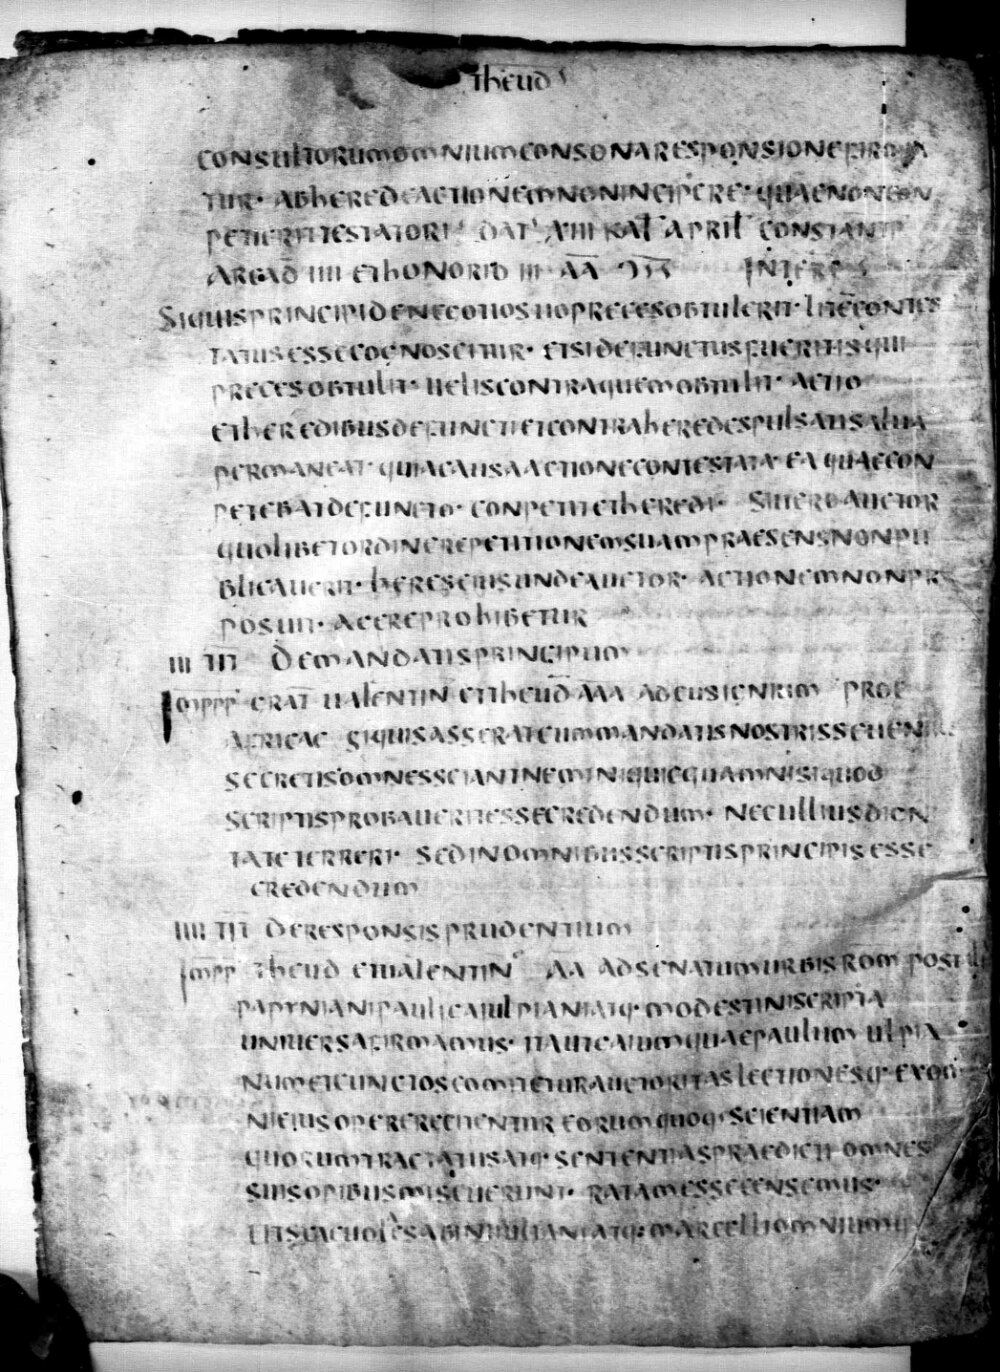 theud
consultorum omnium consona responsione firma
tur · ab herede actionem non incipere · quae non con
petierit testatori dat VIII kal april constantp
arcad IIII et honorio III AA
Si quis principi de negotio suo preces obtulerit · litem contes
tatus esse cognoscitur · et si defunctus fuerit is qui
preces obtulit · uel is contra quem obtulit · actio
et heredibus defuncti et contra heredes pulsatis alua
permaneat · quia causa actione contestata · ea quae con
petebat defuncto · conpetit et heredi · Si uero auctor
quolibet ordine repetitionem suam praesens non pu
blicauerit · heres eius unde auctor · actionem non pr
posuit · agere prohibetur
III TIT De mandatis principum
Imppp grat ualentin et theud AAA ad eusignium prop
africae Si quis asserat cum mandatis nostris se uenis
secretis omnes sciant nemini quicquam nisi quod
scriptis probauerit esse credendum · nec ullius digni
tate terreri · sed in omnibus scriptis principis esse
credendum
IIII TIT De responsis prudentium
Impp theud et ualentin AA ad senatum urbis rom post
papyniani pauli gai ulpiani atq · modestini scripta
uniuersa firmamus · ita ut gaium quae paulum ulpia
num et cunctos comitetur auctoritas lectionesq · ex
ni eius opere recitentur eorum quoq · scientiam
quorum tractatus atq · sententias praedicti omnes
suis opibus miscuerunt · ratam esse censemus ·
iuliani atq · marcelli omnium